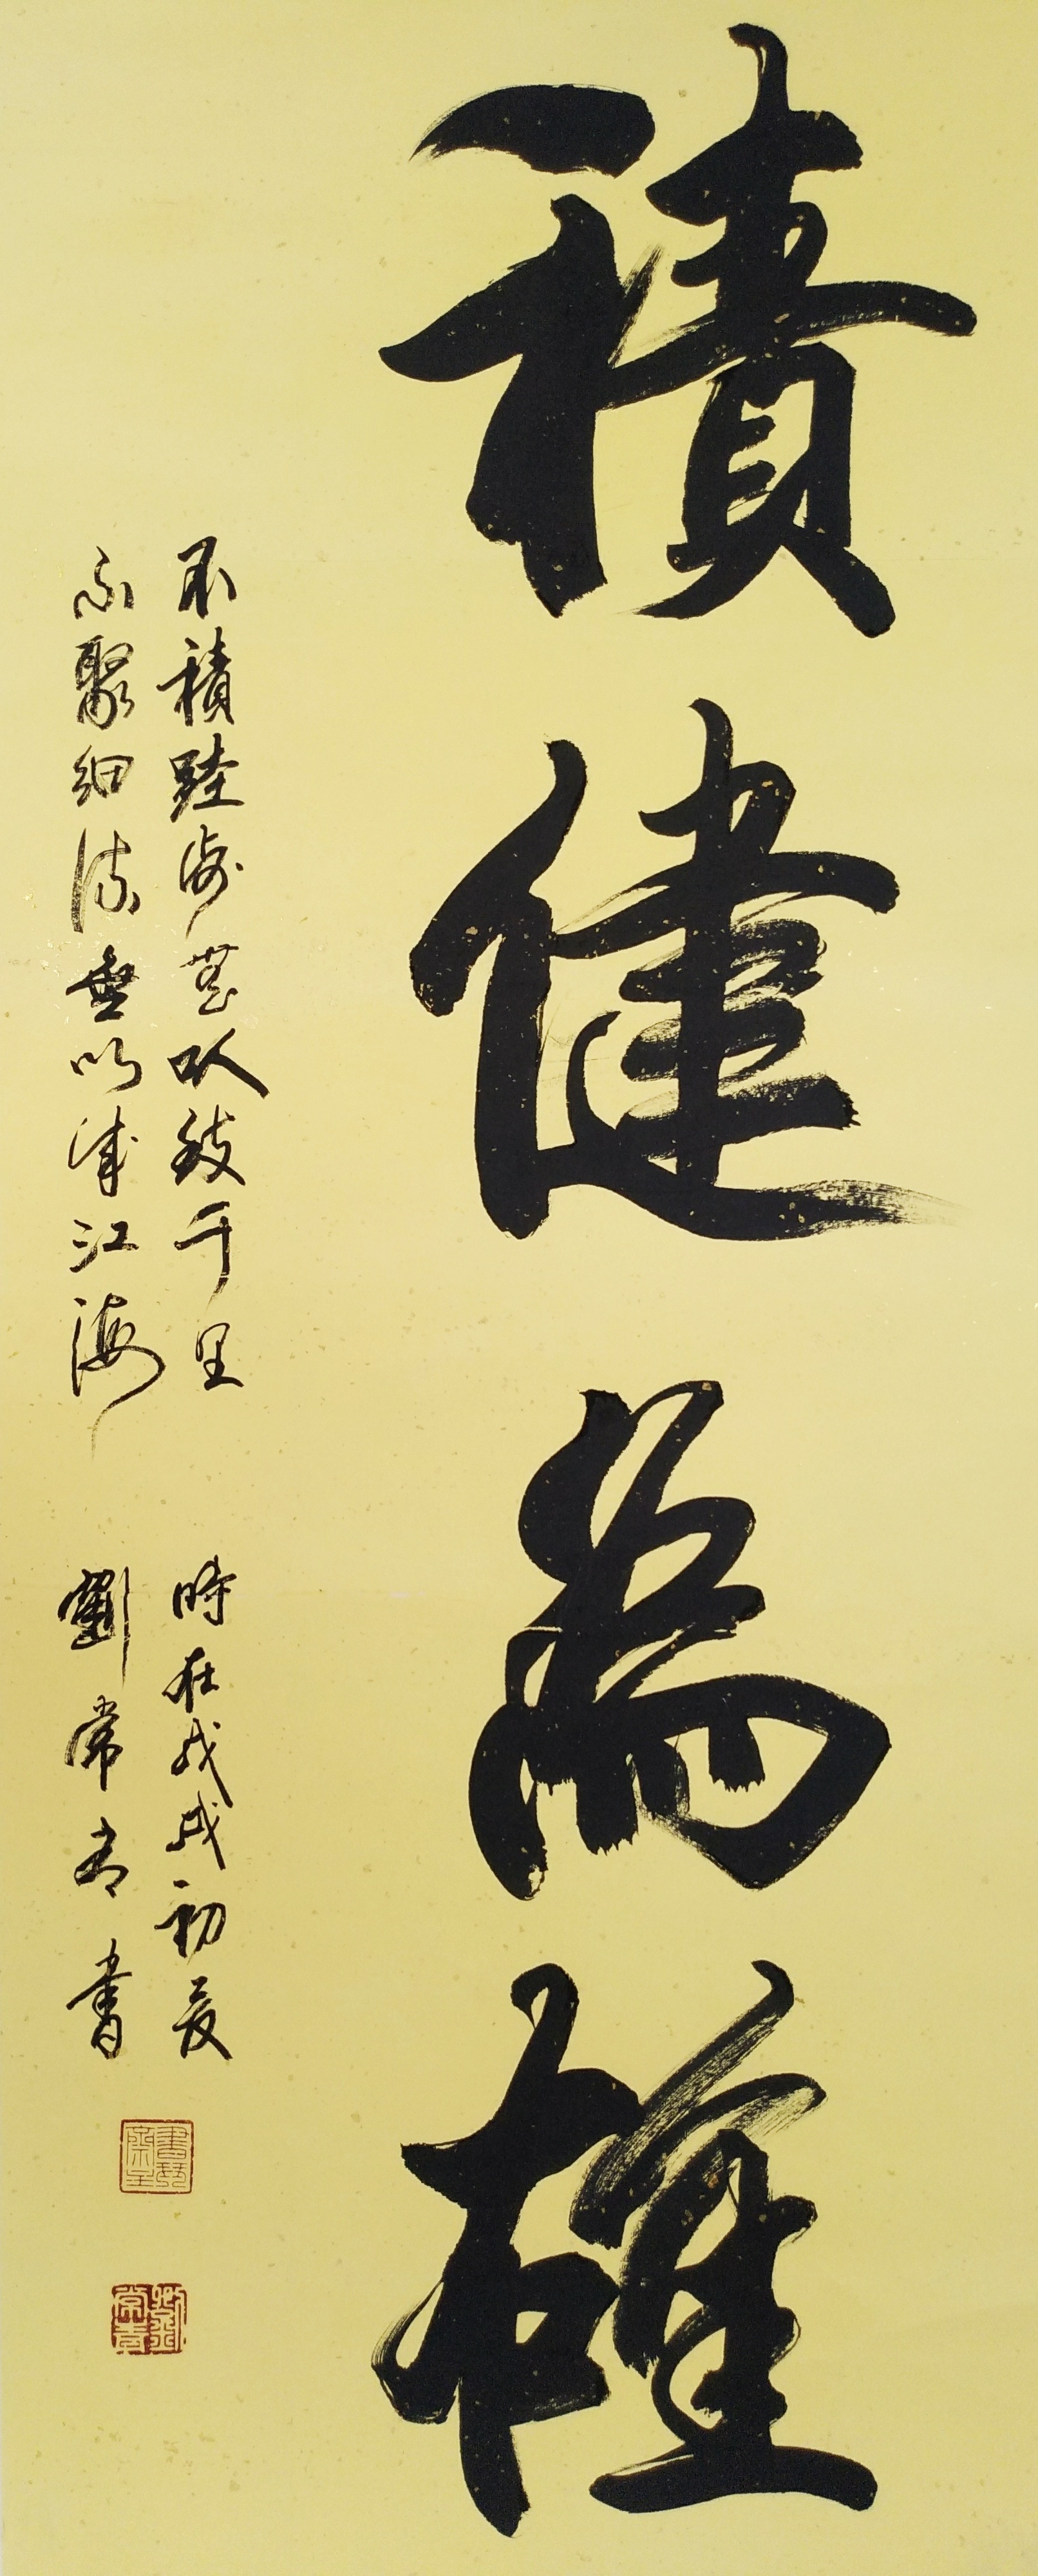 積健為雄
不積跬步無以致千里
不聚細流無以成江海
時在戊戌初夏
劉常青書